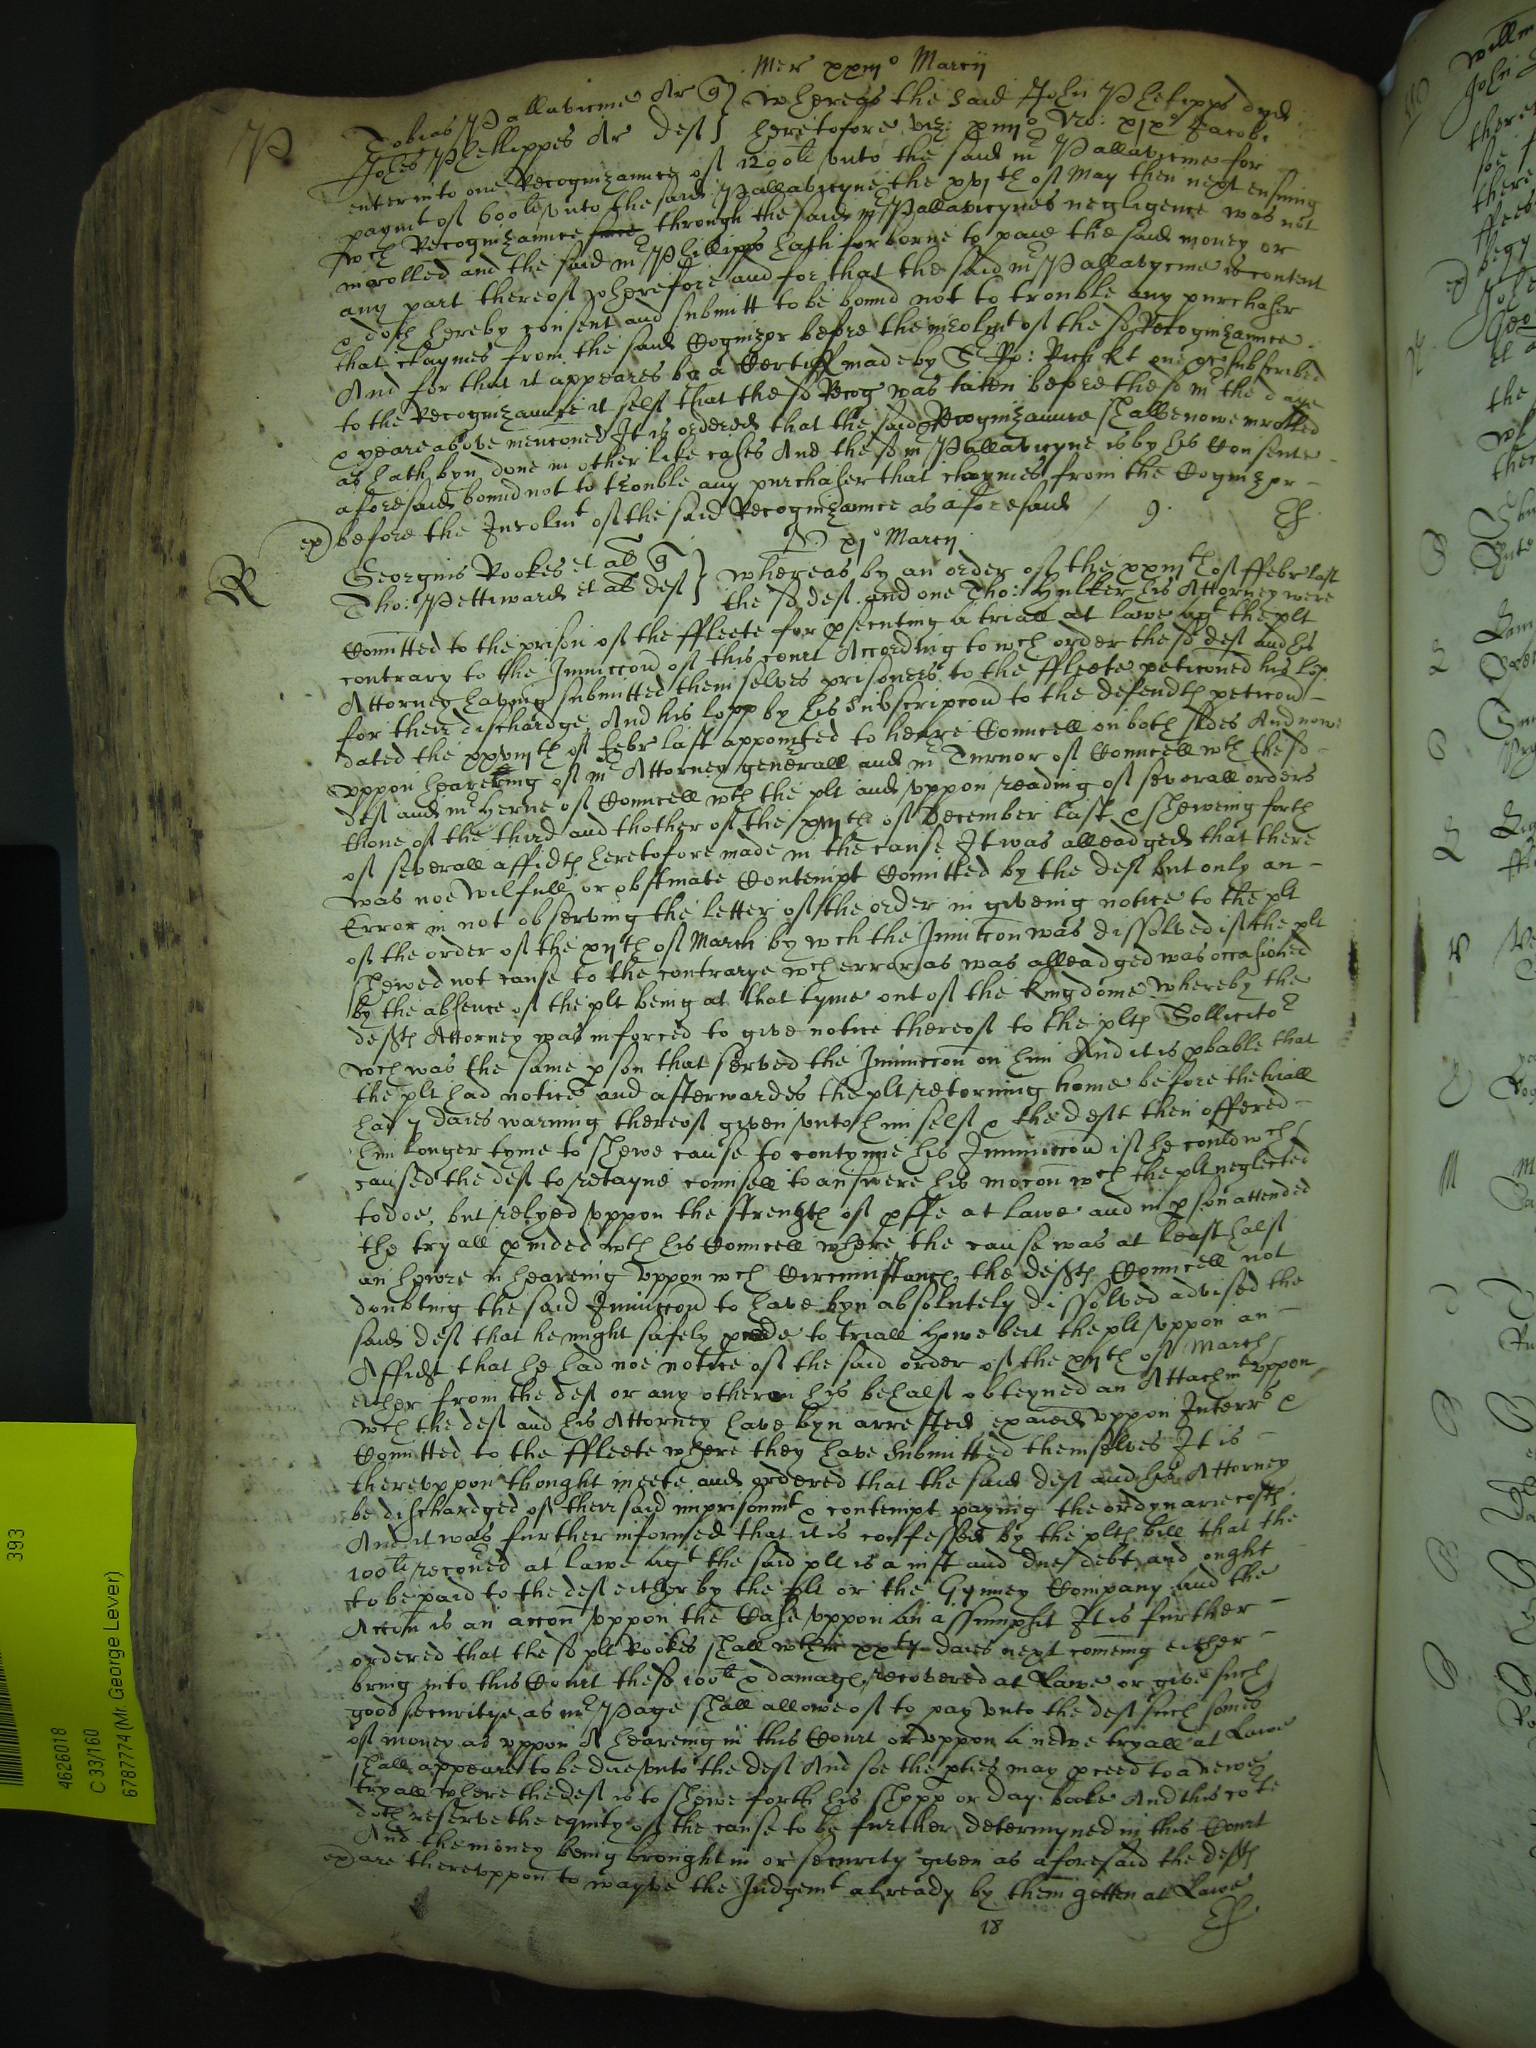 Mer xxiij° Marcij
P
Tobias Pallavicine Ar q } Whereas the said John Phelipps did
Johes Phellippes Ar deft } heretofore viz: xiiij° Nov: xix° Jacobi
enter into one Recognizaunce of 1200li unto the said mr Pallavicine for
paymt of 600li unto the said Pallavicyne the xvjth of May then next ensuing
wch Recognizaunce through the said mr Pallavicynes negligence was not
inrolled and the said mr Phillipps hath forborne to paie the said money or
any part thereof wherefore and for that the said mr Pallavycine is content
& doth hereby consent and submitt to be bound not to trouble any purchaser
that claymes from the said Cognizor before the inrolmt of the sd Recognizaunce.
And for that it appeares by a Certiff made by Sr Ro: Rich kt one of subscribed
to the Recognizaunce it self that the sd Recog was taken before the sd mr the daye
& yeare above mencioned It is ordered that the said Recognizaunce shalbe nowe inrolled
as hath byn done in other like cases And the sd mr Pallavicyne is by his Consente
aforesaid bound not to trouble any purchaser that claymes from the Cognizor
ex) before the Inrolmt of the said Recognizaunce as aforesaid / 9.
D xj° Marcij
R
Georgius Rookes et al q } Whereas by an order of the xxiijth of ffebr last
Tho: Pettiward et al deft } the sd deft and one Tho: Hulker his Attorney were
Comitted to the prison of the ffleete for psecuting a triall at lawe agt the plt
contrary to the Iniunccon of this court According to wch order the sd deft and his
Attorney having submitted themselves prisoners to the ffleete peticoned his lop
for their dischardge And his lopp by his subscripcon to the defendts peticon
dated the xxviijth of febr last appointed to heare Councell on both sides And nowe
uppon heareing of mr Attorney generall and mr Turnor of Councell wth the sd
deft and mr Herne of Councell wth the plt and uppon reading of severall orders
thone of the third and thother of the xiijth of December last & sheweing forth
of severall affidts heretofore made in the cause It was alleadged that there
was noe wilfull or obstinate Contempt Comitted by the deft but only an
Error in not observing the letter of the order in giveing notice to the plt
of the order of the xijth of March by wch the Iniuncon was dissolved if the plt
shewed not cause to the contrarye wch error as was alleadged was occasioned
by the absence of the plt being at that tyme out of the kingdome whereby the
defts Attorney was inforced to give notice thereof to the plts Sollicitor
wch was the same pson that served the Iniunccon on him And it is pbable that
the plt had notice and afterwardes the plt retorning home before the triall
had 7 daies warning thereof given unto himself & the deft then offered
him longer tyme to shewe cause to contynue his Iniunccon if he could wch
caused the deft to retayne counsell to answere his mocon wch the plt neglected
to doe, but relyed uppon the strength of pffe at lawe and in pson attended
the tryall pvided wth his Councell where the cause was at least half
an howre in heareing uppon wch Circumstances the defts Councell not
doubting the said Iniunccon to have byn absolutely dissolved advised the
said deft that he might safely pcede to triall Howebeit the plt uppon an
Affidt that he had noe notice of the said order of the xijth of March
either from the deft or any other on his behalf obteyned an Attachmt uppon
wch the deft and his Attorney have byn arrested exaied uppon Interrs &
Comitted to the ffleete where they have submitted themselves It is
thereuppon thought meete and ordered that the said deft and his Attorney
be dischardged of their said imprisonmt & contempt paying the ordynarie costs
And it was further informed that it is confessed by the plts bill that the
100li recoued at lawe agt the said plt is a iust and due debt and ought
to be paid to the deft either by the plt or the Gynney Company And the
Accon is an accon uppon the Case uppon an assumpsit It is further
ordered that the sd plt Rookes shall wthin xxty daies next comeing either
bring into this Court the sd 100li & damages recovered at Lawe or give such
good securitye as mr Page shall allowe of to pay unto the deft such somes
of money as uppon A heareing in this Court or uppon a newe tryall at Lawe
shall appeare to be due unto the deft And soe the pties may pceed to a newe
tryall where the deft is to shewe forth his shopp or day booke And this cote
doth reserve the equity of the cause to be further determyned in this Court
And the money being brought in or security given as aforesaid the defts
ex) are thereuppon to wayve the Judgemt already by them gotten at Lawe
18
393
4626018
C 33/160
6787774 (Mr. George Lever)